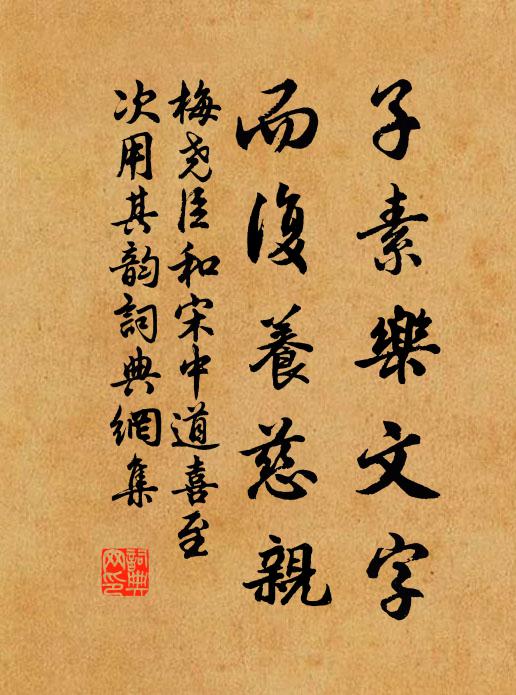 子素樂文字
而復養慈親
梅堯臣和宋中道喜至
次用其韵詞典網集
詞典網印